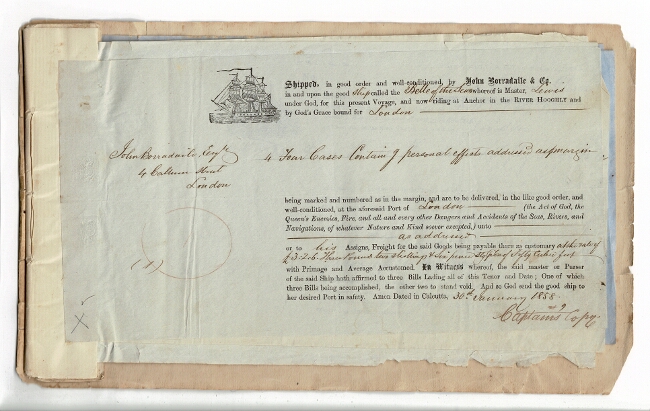 Shipped, in good order and well-conditioned, by John Borradaile & Co.
in and upon the good Ship called the Belle of the Sea whereof is Master, Lewis
under God, for this present Voyage, and now riding at Anchor in the RIVER HOOGHLY and
by God's Grace bound for London
John Borradaile, Esqre
4 Cullum Street
London
4 Four Cases Containg personal effects addressed as p margin
being marked and numbered as in the margin, and are to be delivered, in the like good order, and
well-conditioned, at the aforesaid Port of London (the Act of God, the
Queen's Enemies, Fire, and all and every other Dangers and Accidents of the Seas, Rivers, and
Navigations, of whatever Nature and Kind soever excepted,) unto
as addressed
or to his Assigns, Freight for the said Goods being payable there as customary at the rate of
Three Pounds two Shillings & six pence Ston of Fifty Cubic feet
with Primage and Average Accustomed. In Witness whereof, the said master or Purser
of the said Ship hath affirmed to three Bills Lading all of this Tenor and Date; One of which
three Bills being accomplished, the other two to stand void. And so God send the good ship to
her desired Port in safety. Amen Dated in Calcutta, 30th January 1858.
Captain's Copy.